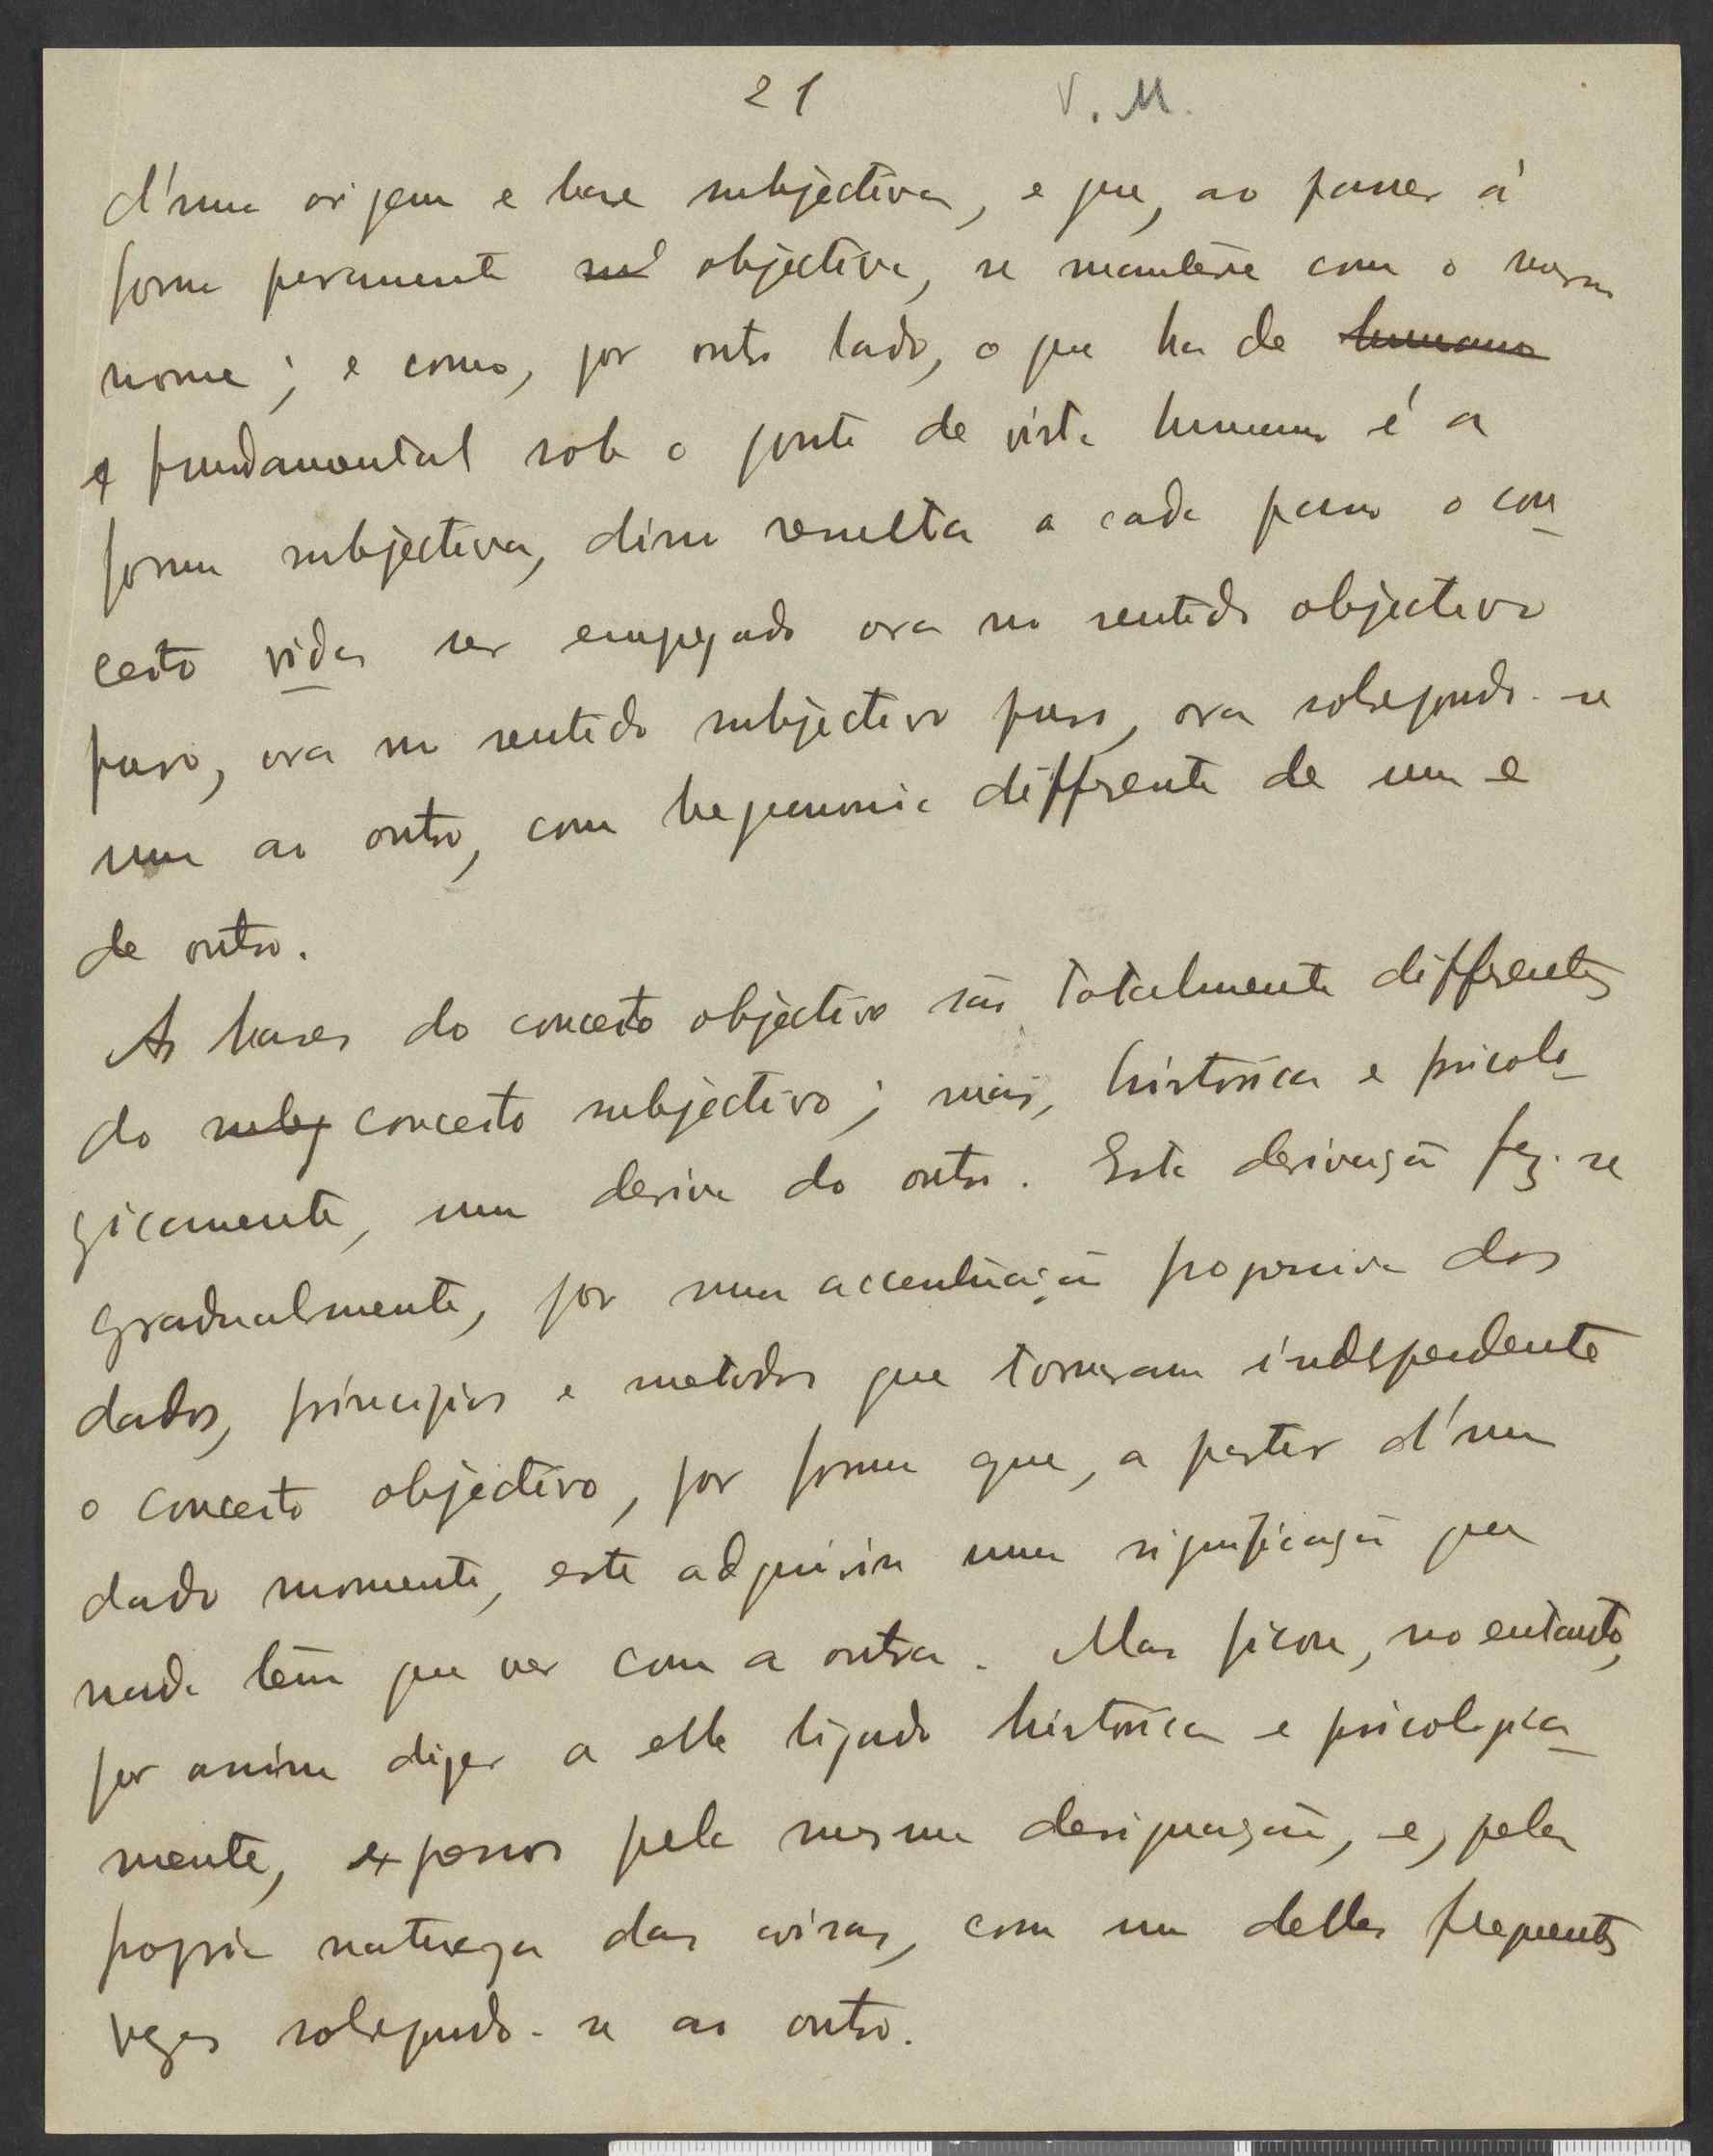 21 V. M.
d'uma origem e base subjectiva, e que, ao passar á
forma puramente sub objectiva, se manteve com o mesmo
nome; e como, por outro lado, o que ha de humano
e fundamental sob o ponto de vista humano é a
forma subjectiva, disso resulta a cada passo o con-
ceito vida ser empregado ora no sentido objectivo
puro, ora no sentido subjectivo puro, ora sobrepondo-se
um ao outro, com hegemonia differente de um e
de outro.
As bases do conceito objectivo são totalmente differentes
do subj conceito subjectivo; mas, historica e psicolo-
gicamente, um deriva do outro. Esta derivação fez-se
gradualmente, por uma accentuação progressiva dos
dados, principios e metodos que tornaram independente
o conceito objectivo, por forma que, a partir d'um
dado momento, este adquirira uma significação que
nada tem que ver com a outra. Mas ficou, no entanto,
por assim dizer a elle ligado historica e psicologica-
mente, expressos pela mesma designação, e, pela
propria natureza das coisas, com um delles frequentes
vezes sobrepondo-se ao outro.